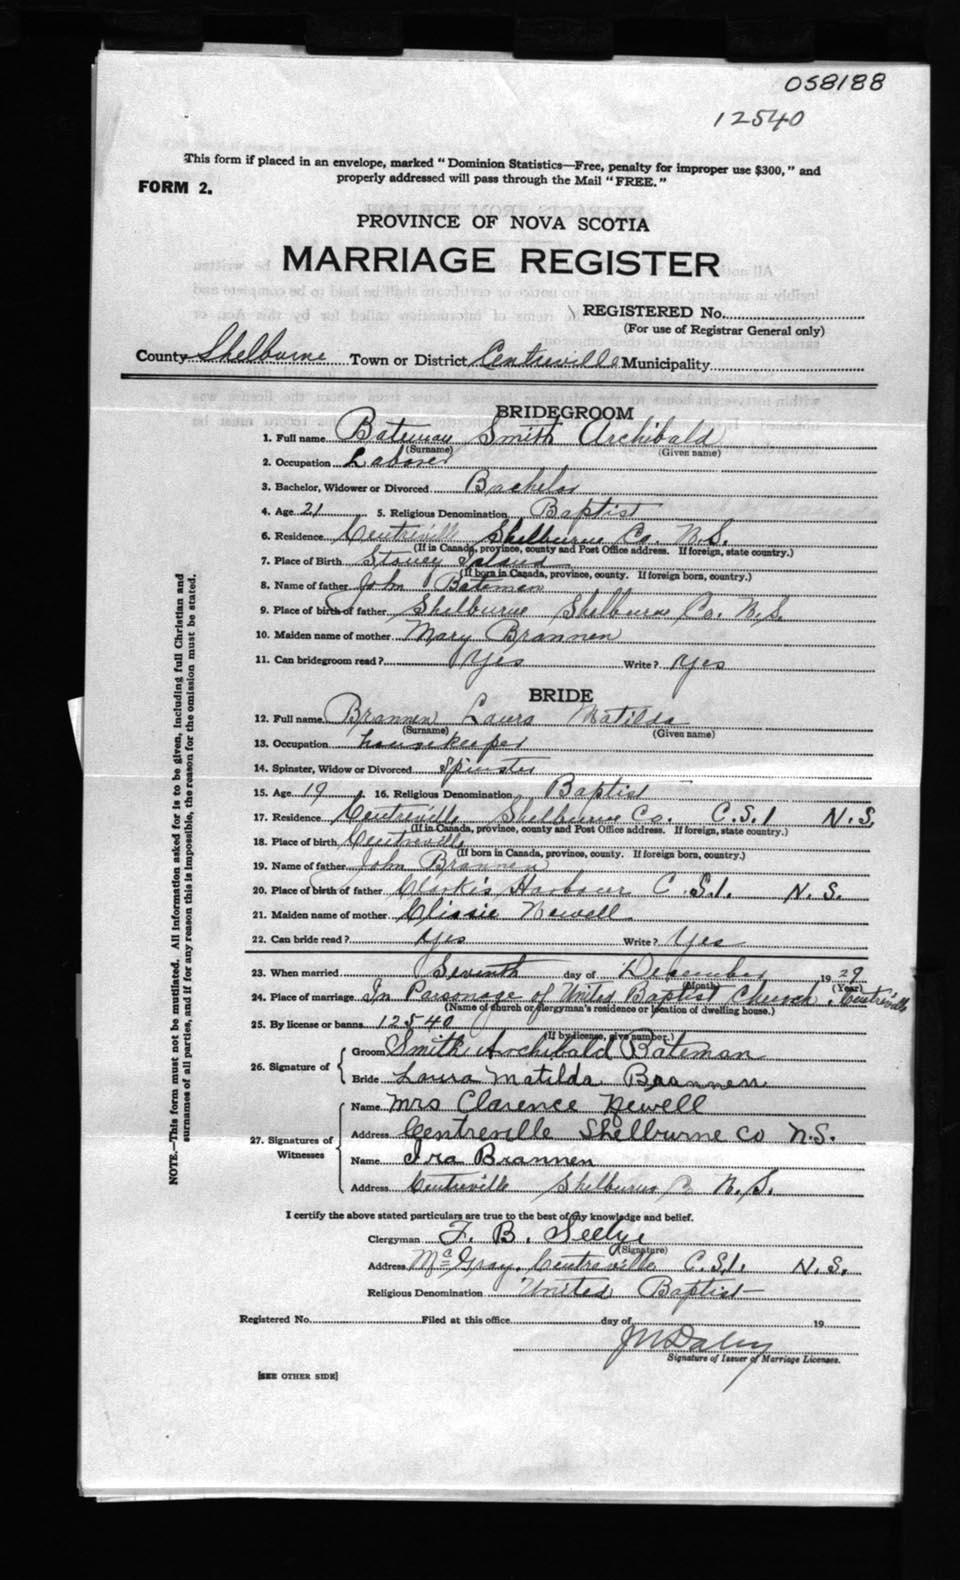 058188
12540
This form if placed in an envelope, marked "Dominion Statistics—Free, penalty for improper use $300," and
properly addressed will pass through the Mail "FREE."
FORM 2.
PROVINCE OF NOVA SCOTIA
MARRIAGE REGISTER
REGISTERED No.
(For use of Registrar General only)
County Shelburne Town or District Centreville Municipality
BRIDEGROOM
1. Full name Bateman Smith Archibald
(Surname) (Given name)
2. Occupation Laborer
3. Bachelor, Widower or Divorced Bachelor
4. Age 21 5. Religious Denomination Baptist
6. Residence Centreville Shelburne Co. N.S.
(If in Canada, province, county and Post Office address. If foreign, state country.)
7. Place of Birth Stoney Island
(If born in Canada, province, county. If foreign born, country.)
8. Name of father John Bateman
9. Place of birth of father Shelburne Shelburne Co. N.S.
10. Maiden name of mother Mary Brannen
11. Can bridegroom read? Yes Write? Yes
BRIDE
12. Full name Brannen Laura Matilda
(Surname) (Given name)
13. Occupation housekeeper
14. Spinster, Widow or Divorced Spinster
15. Age 19 16. Religious Denomination Baptist
17. Residence Centreville Shelburne Co. C.S.I N.S.
(If in Canada, province, county and Post Office address. If foreign, state country.)
18. Place of birth Centreville
(If born in Canada, province, county. If foreign born, country.)
19. Name of father John Brannen
20. Place of birth of father Clark's Harbour C.S.I. N.S.
21. Maiden name of mother Clissie Newell
22. Can bride read? Yes Write? Yes
23. When married Seventh day of December 1929
(Month) (Year)
24. Place of marriage In Parsonage of United Baptist Church, Centreville
(Name of church or clergyman's residence or location of dwelling house.)
25. By license or banns 12540
(If by license, give number.)
26. Signature of
Groom Smith Archibald Bateman
Bride Laura Matilda Brannen
27. Signatures of Witnesses
Name Mrs Clarence Newell
Address Centreville Shelburne Co N.S.
Name Ira Brannen
Address Centreville Shelburne Co N.S.
I certify the above stated particulars are true to the best of my knowledge and belief.
Clergyman F. B. Seelye
(Signature)
Address McGray, Centreville C.S.I. N.S.
Religious Denomination United Baptist
Registered No. Filed at this office day of 19
Signature of Issuer of Marriage Licenses.
[SEE OTHER SIDE]
NOTE.—This form must not be mutilated. All information asked for is to be given, including full Christian and
surnames of all parties, and if for any reason this is impossible, the reason for the omission must be stated.